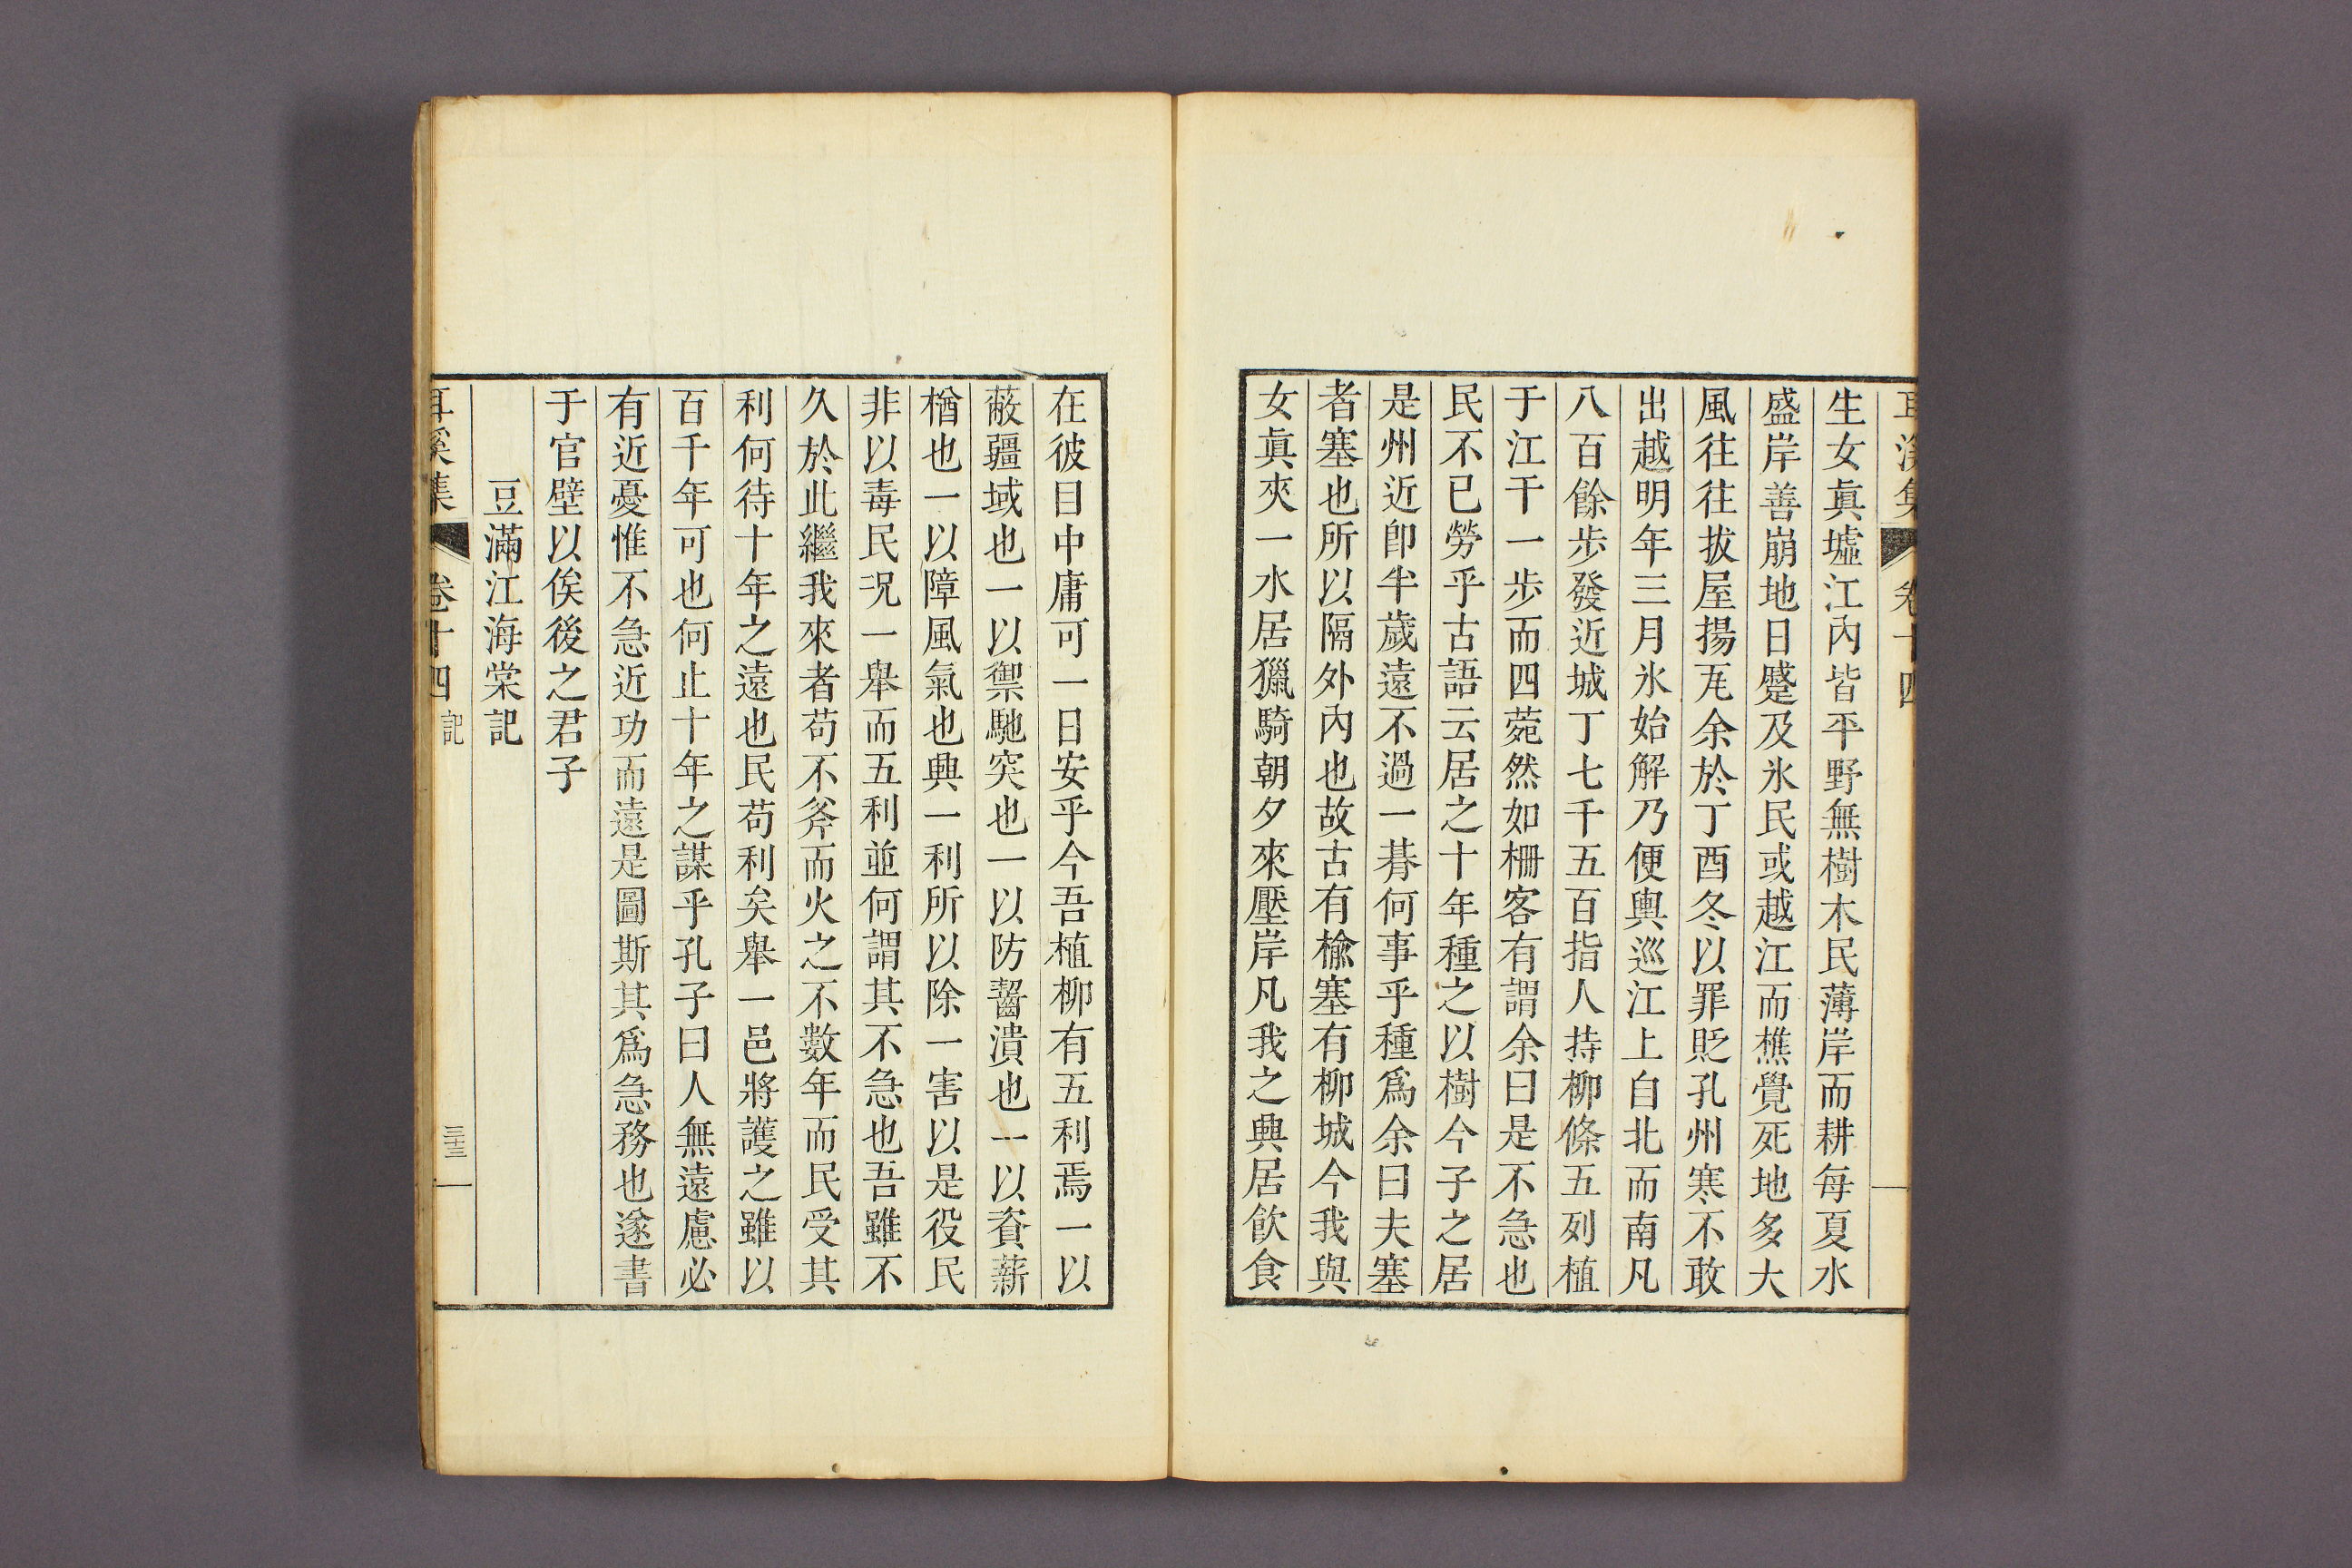 耳溪集 卷十四
生女眞墟江內皆平野無樹木民薄岸而耕每夏水
盛岸善崩地日蹙及氷民或越江而樵覺死地多大
風往往拔屋揚瓦余於丁酉冬以罪貶孔州寒不敢
出越明年三月氷始解乃便輿巡江上自北而南凡
八百餘步發近城丁七千五百指人持柳條五列植
于江干一步而四菀然如柵客有謂余曰是不急也
民不已勞乎古語云居之十年種之以樹今子之居
是州近卽半歲遠不過一朞何事乎種爲余曰夫塞
者塞也所以隔外內也故古有楡塞有柳城今我與
女眞夾一水居獵騎朝夕來壓岸凡我之興居飮食
在彼目中庸可一日安乎今吾植柳有五利焉一以
蔽疆域也一以禦馳突也一以防齧潰也一以資薪
槱也一以障風氣也興一利所以除一害以是役民
非以毒民況一舉而五利並何謂其不急也吾雖不
久於此繼我來者苟不斧而火之不數年而民受其
利何待十年之遠也民苟利矣舉一邑將護之雖以
百千年可也何止十年之謀乎孔子曰人無遠慮必
有近憂惟不急近功而遠是圖斯其爲急務也遂書
于官壁以俟後之君子
豆滿江海棠記
耳溪集 卷十四 記 三十三